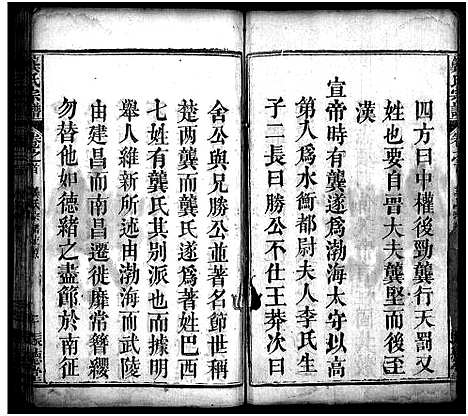 四方曰中權後勁龔行天罰又
姓也要自晉大夫龔堅而後至
漢
宣帝時有龔遂爲渤海太守以高
第入爲水衡都尉夫人李氏生
子二長曰勝公不仕王莽次曰
舍公與兄勝公並著名節世稱
楚兩龔而龔氏遂爲著姓巴西
七姓有龔氏其別派也而據明
舉人維新所述由渤海而武陵
由建昌而南昌遷徙靡常簪纓
勿替他如德緒之盡節於南征
龔氏宗譜
卷之首